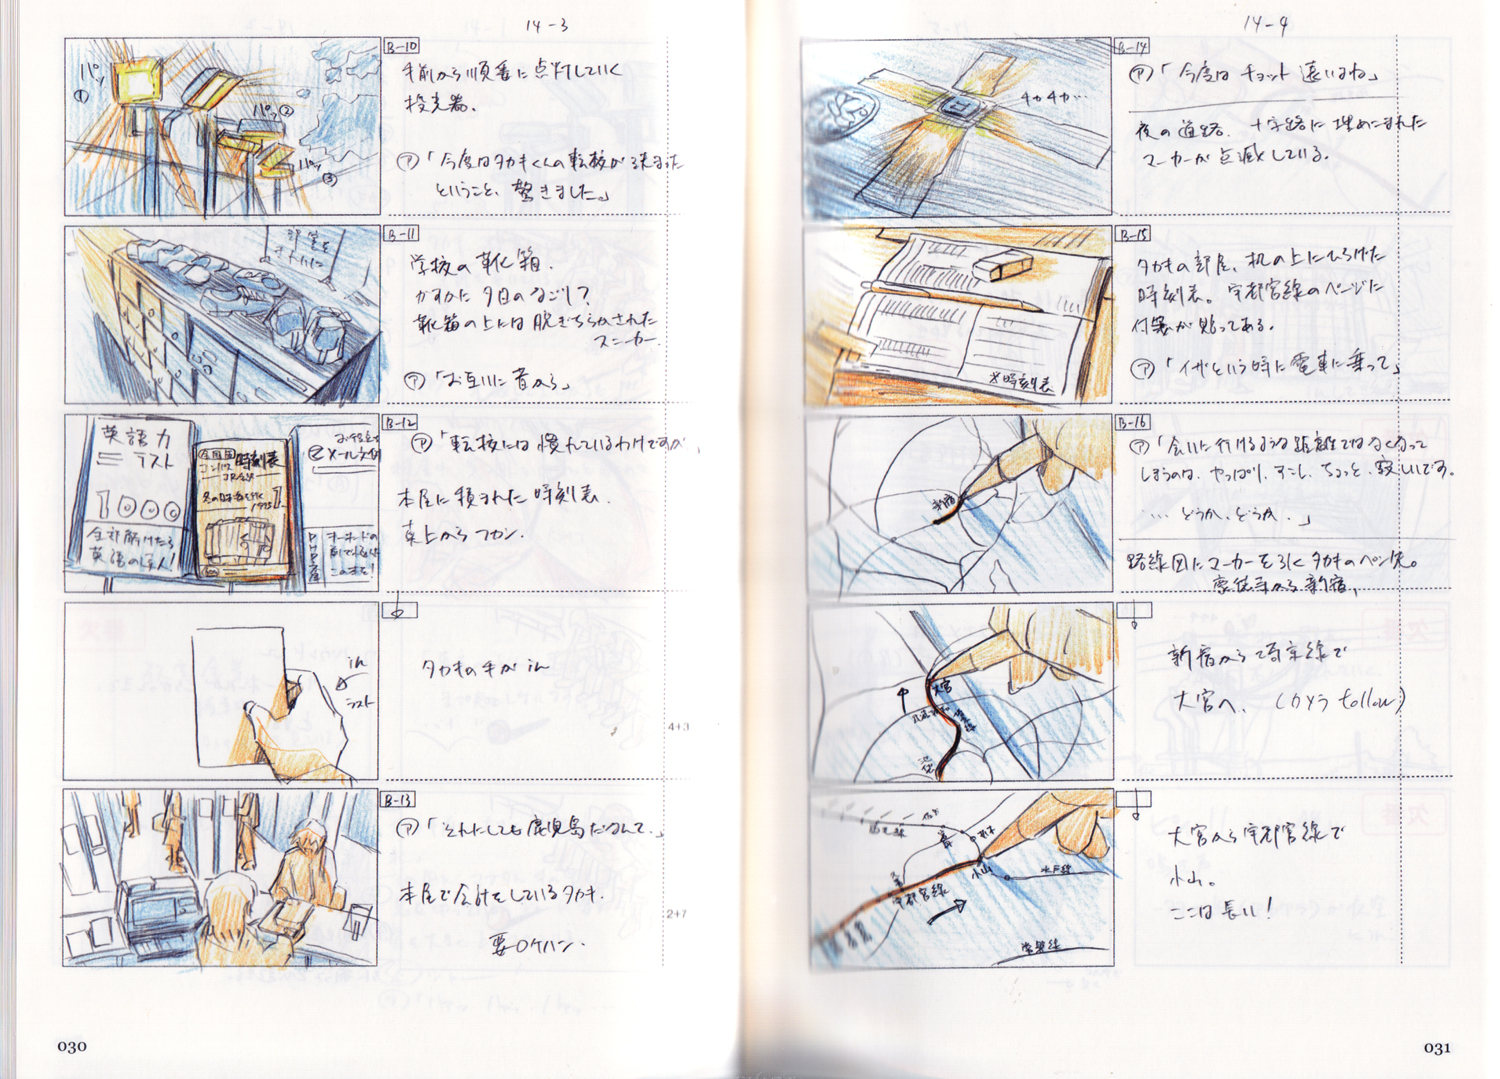 14-3
B-10
パッ
①
パッ
②
パッ
③
手前から順番に点灯していく
投光器。
ア「今度はタカキくんの転校が決まった
ということ、驚きました。」
B-11
学校の靴箱。
かすかに夕日のなごり?
靴箱の上には脱ぎちらかされた
スニーカー。
ア「お互いに昔から」
B-12
英語力
テスト
1000
全部解けたら
英語の達人!
時刻表
メール文例
ア「転校には慣れているわけですが、
本屋に積まれた時刻表。
真上からフカン。
in
ラスト
タカキの手がin
4+3
B-13
ア「それにしても鹿児島だなんて。」
本屋で会計をしているタカキ。
要ロケハン。
2+7
030
14-4
B-14
チカチカ…
ア「今度はチョット遠いよね」
夜の道路、十字路に埋めこまれた
マーカーが点滅している。
B-15
※時刻表
タカキの部屋、机の上にひろげた
時刻表。宇都宮線のページに
付箋が貼ってある。
ア「イザという時に電車に乗って」
B-16
新宿
ア「会いに行けるような距離ではなくなって
しまうのは、やっぱり、すこし、ちょっと、寂しいです。
… どうか、どうか。」
路線図にマーカーを引くタカキのペン先。
豪徳寺から新宿、
大宮
池袋
新宿から埼京線で
大宮へ。(カメラfollow)
小山
水戸線
宇都宮線
常磐線
大宮から宇都宮線で
小山。
ここは長い!
031